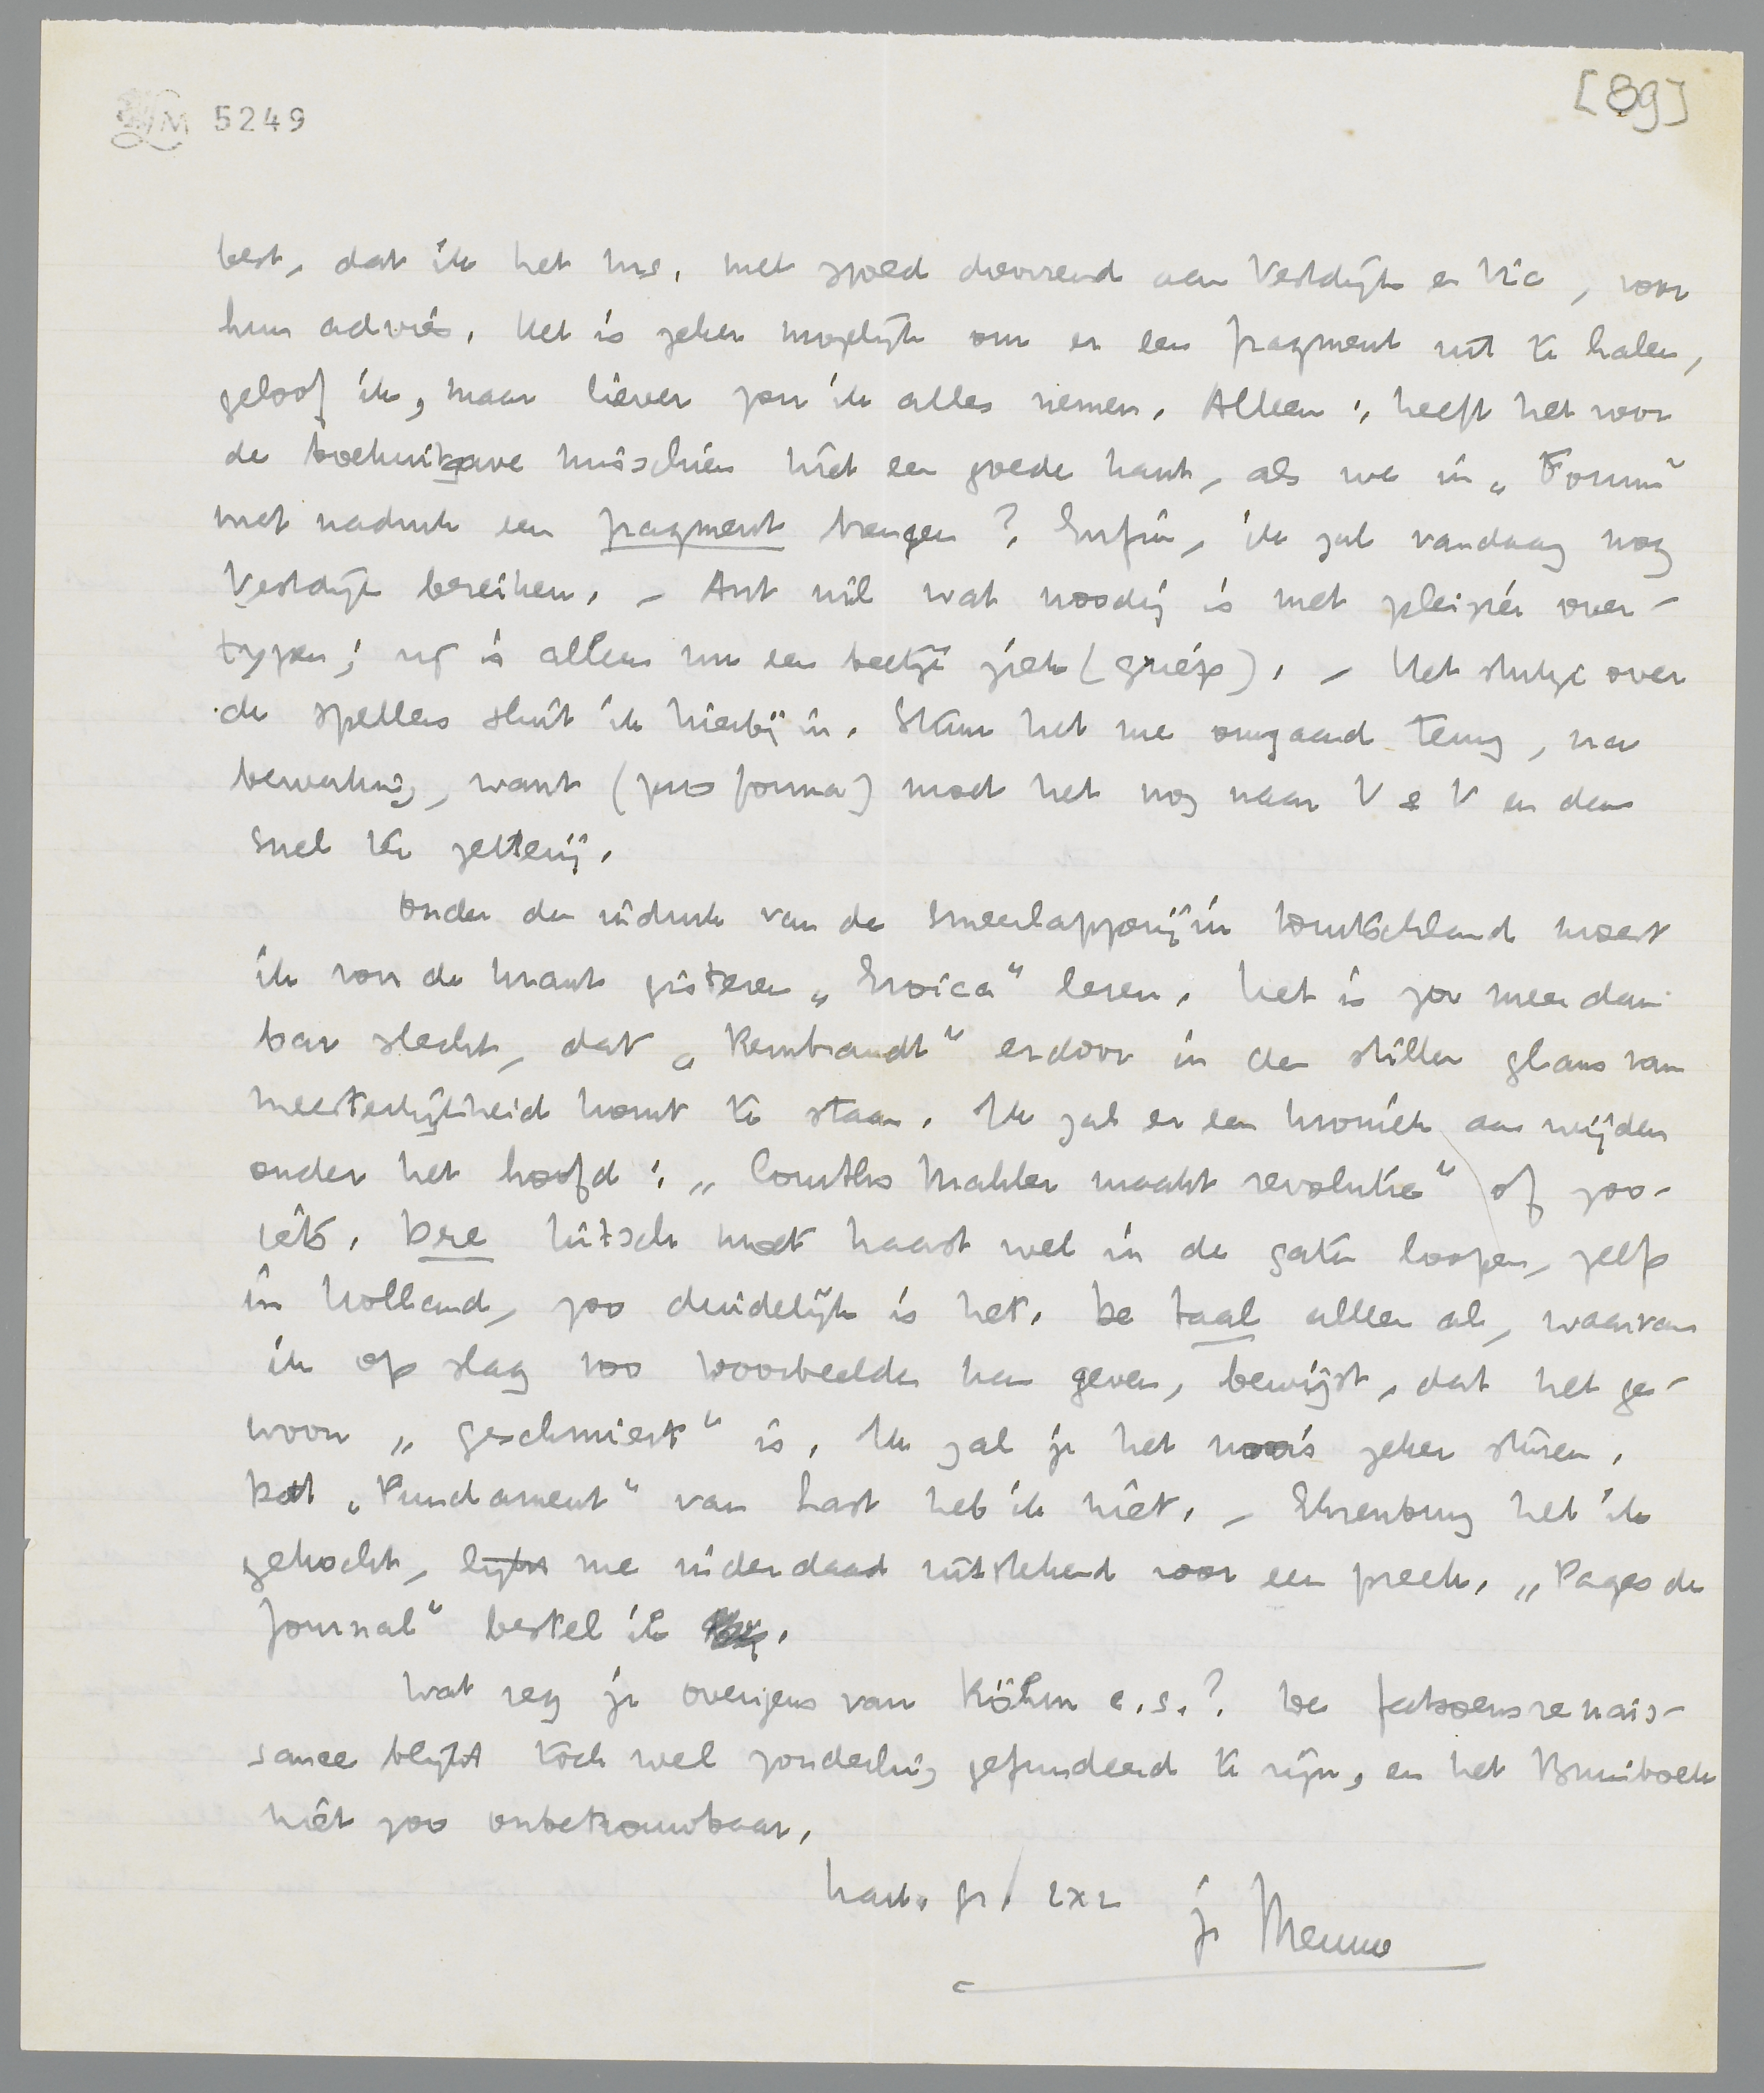 LM 5249
[89]
best, dat ik het ms. met spoed doorzend aan Vestdijk en Vic, voor
hun advies. Het is zeker mogelijk om er een fragment uit te halen,
geloof ik, maar liever zou ik alles nemen. Alleen: heeft het voor
de boekuitgave misschien niet een goede kant, als we in „Forum"
met nadruk een fragment brengen? Enfin, ik zal vandaag nog
Vestdijk bereiken. – Ant wil wat noodig is met pleizier over-
typen; zij is alleen nu een beetje ziek (griep). – Het stukje over
de spellers sluit ik hierbij in. Stuur het me omgaand terug, na
bewerking, want (pro forma) moet het nog naar V e V en dan
snel ter zetterij.
Onder den indruk van de smeerlapperij in Duitschland moest
ik voor de krant gisteren „Eroica" lezen. Het is zoo meer dan
bar slecht, dat „Rembrandt" erdoor in den stillen glans van
meesterlijkheid komt te staan. Ik zal er een kroniek aan wijden
onder het hoofd: „Courths Mahler maakt revolutie" of zoo-
iets. Die kitsch moet haast wel in de gaten loopen, zelfs
in Holland, zoo duidelijk is het. De taal alleen al, waarvan
ik op slag 100 voorbeelden kan geven, bewijst, dat het ge-
woon „geschmiert" is. Ik zal je het zeker sturen.
Het „Fundament" van Last heb ik niet. – Ehrenburg heb ik
gekocht, lijkt me inderdaad uitstekend voor een preek. „Pages de
Journal" bestel ik.
Wat zeg je overigens van Röhm e.s.? De fatsoensrenais-
sance blijkt toch wel zonderling gefundeerd te zijn, en het Bruinboek
niet zoo onbetrouwbaar.
hart. gr. 2x2 je Menno